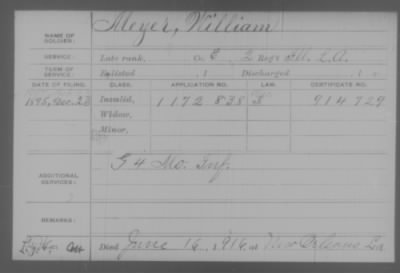 NAME OF SOLDIER: Meyer, William
SERVICE: Late rank, Co. E, 2 Reg't Ill. L.A.
TERM OF SERVICE: Enlisted , 1 Discharged , 1
DATE OF FILING. CLASS. APPLICATION NO. LAW. CERTIFICATE NO.
1895, Dec. 23 Invalid, 1172 838 914729
Widow,
Minor,
ADDITIONAL SERVICES: G 4 Mo. Inf.
REMARKS:
Died June 16, 1916, at New Orleans La